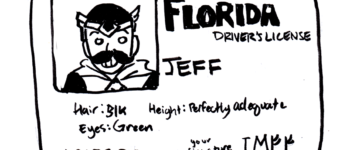 FLORIDA
DRIVER'S LICENSE
JEFF
Hair: Blk Height: Perfectly adequate
Eyes: Green
your